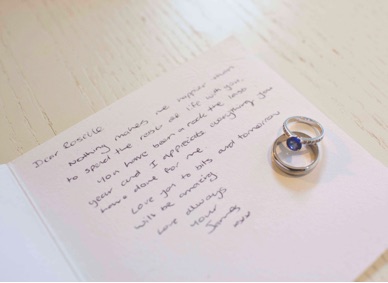 Dear Rosie
Nothing makes me happier than
to spend the rest of life with you.
You have been a rock the last
year and I appreciate everything you
have done for me
Love you to bits and tomorrow
will be amazing
Love always
Your
James
xxx